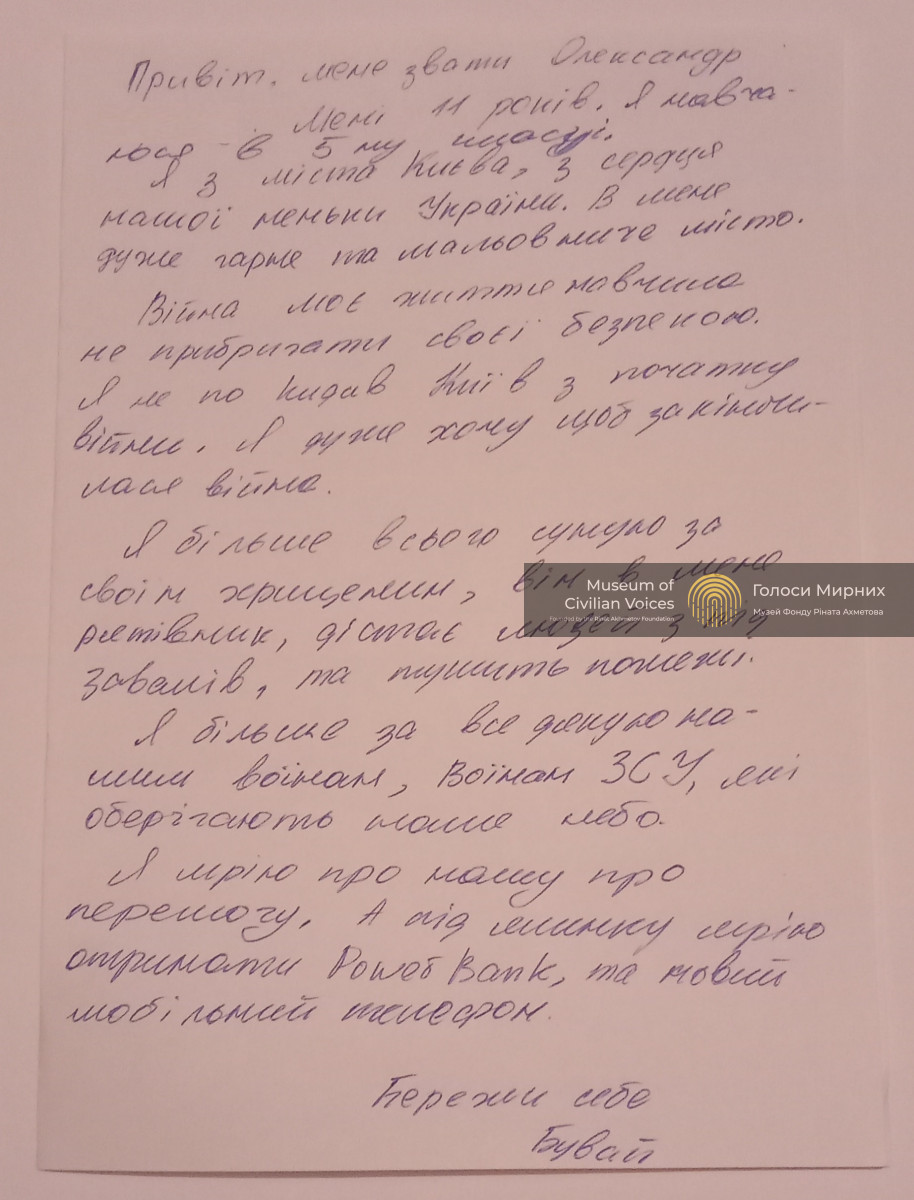 Привіт. мене звати Олександр
Мені 11 років. Я навча-
юся - в 5 му класі.
Я з міста Києва, з сердця
нашої неньки України. В мене
дуже гарне та мальовниче місто.
Війна моє життя навчила
не прибригати своєї безпекою.
Я не по кидав Київ з початку
війни. Я дуже хочу щоб закінчи-
лася війна.
Я більше всього сумую за
своїм хрищеним, він в мене
рятівник, дістає людей з під
завалів, та тушить пожежі.
Museum of
Civilian Voices
Founded by the Rinat Akhmetov Foundation
Голоси Мирних
Музей Фонду Ріната Ахметова
Я більше за все дякую на-
шим воїнам, Воїнам ЗСУ, які
оберігають наше небо.
Я мрію про нашу про
перемогу. А під ялинку мрію
отримати Power Bank, та новий
мобільний телефон.
Бережи себе
Бувай